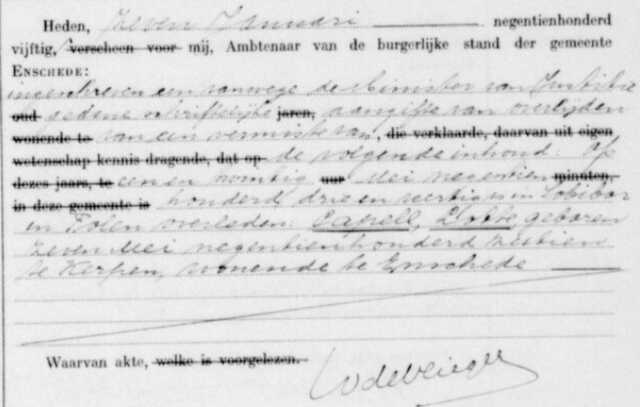 Heden, zeven Januari negentienhonderd
vijftig, verscheen voor mij, Ambtenaar van de burgerlijke stand der gemeente
ENSCHEDE:
ingeschreven een vanwege de Minister van Justitie
oud gedane schriftelijke jaren, aangifte van overlijden
wonende te van een vermiste van, die verklaarde, daarvan uit eigen
wetenschap kennis dragende, dat op de volgende inhoud: Op
dezes jaars, te een en twintig uur Mei negentien minuten,
in deze gemeente is honderd drie en veertig is in Sobibor
in Polen overleden: Capell, geboren
zeven Mei negentienhonderd zestien
te Kerpen, wonende te Enschede
Waarvan akte, welke is voorgelezen.